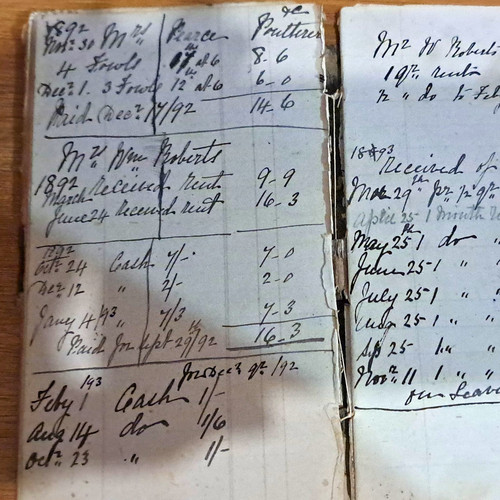 1892 Mrs Pearce Poulterer &c
Novr 30
4 Fowls 17lb at 6 8-6
Decr 1. 3 Fowls 12lb at 6 6-0
Paid Decr 17/92 14-6
Mrs Wm Roberts
1892 Received rent 9-9
March
June 24 received rent 16-3
1892
Octr 24 Cash 7/- 7-0
Decr 12 " 2/- 2-0
Jany 4/93 " 7/3 7-3
Paid for Sept 29th/92 16-3
for Decr qr /92
Feby 1 /93 Cash 1/-
Aug 14 do 1/6
Octr 23 " 1/-
Mr W Roberts
1 qr rent
1/2 " do to Feby
1893
Received of
Mar 29th for 1/2 qr
April 25 1 month
May 25th 1 do "
June 25 1 " "
July 25 1 " "
Aug 25 1 " "
Sep 25 1 " "
Novr 11 1 " "
on Leav